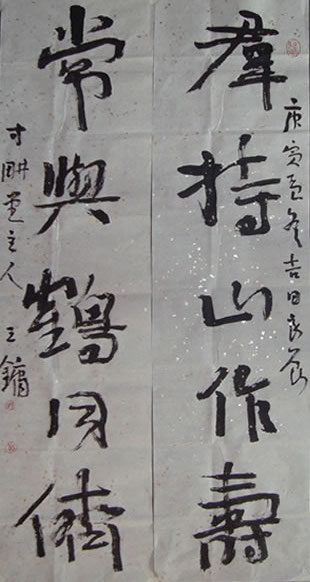 庚寅孟冬吉日良辰
羣持山作壽
常與鶴同儕
寸畊堂主人 王鏞